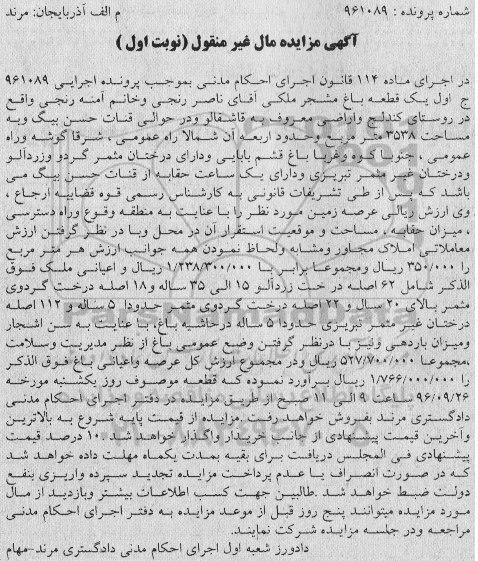 شماره پرونده : ۹۶۱۰۸۹ م الف آذربایجان: مرند
آگهی مزایده مال غیر منقول (نوبت اول )
در اجرای ماده ۱۱۴ قانون اجرای احکام مدنی بموجب پرونده اجرایی ۹۶۱۰۸۹
ج اول یک قطعه باغ مشجر ملکی آقای ناصر رنجی وخانم آمنه رنجی واقع
در روستای کندلج واراضی معروف به قاشقالو ودر حوالی قنات حسن بیگ وبه
مساحت ۳۵۳۸ متر مربع وحدود اربعه آن شمالا راه عمومی ، شرقا گوشه وراه
عمومی ، جنوبا کوه وغربا باغ قشم بابایی ودارای درختان مثمر گردو وزردآلو
ودرختان غیر مثمر تبریزی ودارای یک ساعت حقابه از قنات حسن بیگ می
باشد که پس از طی تشریفات قانونی به کارشناس رسمی قوه قضاییه ارجاع ،
وی ارزش ریالی عرصه زمین مورد نظر را با عنایت به منطقه وقوع وراه دسترسی
، میزان حقابه ، مساحت و موقعیت استقرار آن در محل وبا در نظر گرفتن ارزش
معاملاتی املاک مجاور ومشابه ولحاظ نمودن همه جوانب ارزش هر متر مربع
را ۳۵۰/۰۰۰ ریال ومجموعا برابر با ۱/۲۳۸/۳۰۰/۰۰۰ ریال و اعیانی ملک فوق
الذکر شامل ۶۲ اصله درخت زردآلو ۱۵ الی ۳۵ ساله و۱۸ اصله درخت گردوی
مثمر بالای ۲۰ سال و ۲۲ اصله درخت گردوی مثمر حدودا ۵ ساله و ۱۱۲ اصله
درختان غیر مثمر تبریزی حدودا ۵ ساله درحاشیه باغ، با عنایت به سن اشجار
ومیزان باردهی ونیز با درنظر گرفتن وضع عمومی باغ از نظر مدیریت وسلامت
،مجموعا ۵۲۷/۷۰۰/۰۰۰ ریال ودر مجموع ارزش کل عرصه واعیانی باغ فوق الذکر
را ۱/۷۶۶/۰۰۰/۰۰۰ ریال برآورد نموده که قطعه موصوف روز یکشنبه مورخه
۹۶/۰۹/۲۶ ساعت ۹ الی ۱۱ صبح از طریق مزایده در دفتر اجرای احکام مدنی
دادگستری مرند بفروش خواهد رفت. مزایده از قیمت پایه شروع به بالاترین
وآخرین قیمت پیشنهادی از جانب خریدار واگذار خواهد شد ۱۰ درصد قیمت
پیشنهادی فی المجلس دریافت برای بقیه بمدت یکماه مهلت داده خواهد شد
که در صورت انصراف یا عدم پرداخت مزایده تجدید سپرده واریزی بنفع
دولت ضبط خواهد شد .طالبین جهت کسب اطلاعات بیشتر وبازدید از مال
مورد مزایده میتوانند پنج روز قبل از موعد مزایده به دفتر اجرای احکام مدنی
مراجعه ودر جلسه مزایده شرکت نمایند.
دادورز شعبه اول اجرای احکام مدنی دادگستری مرند-مهام
ParsNamadData